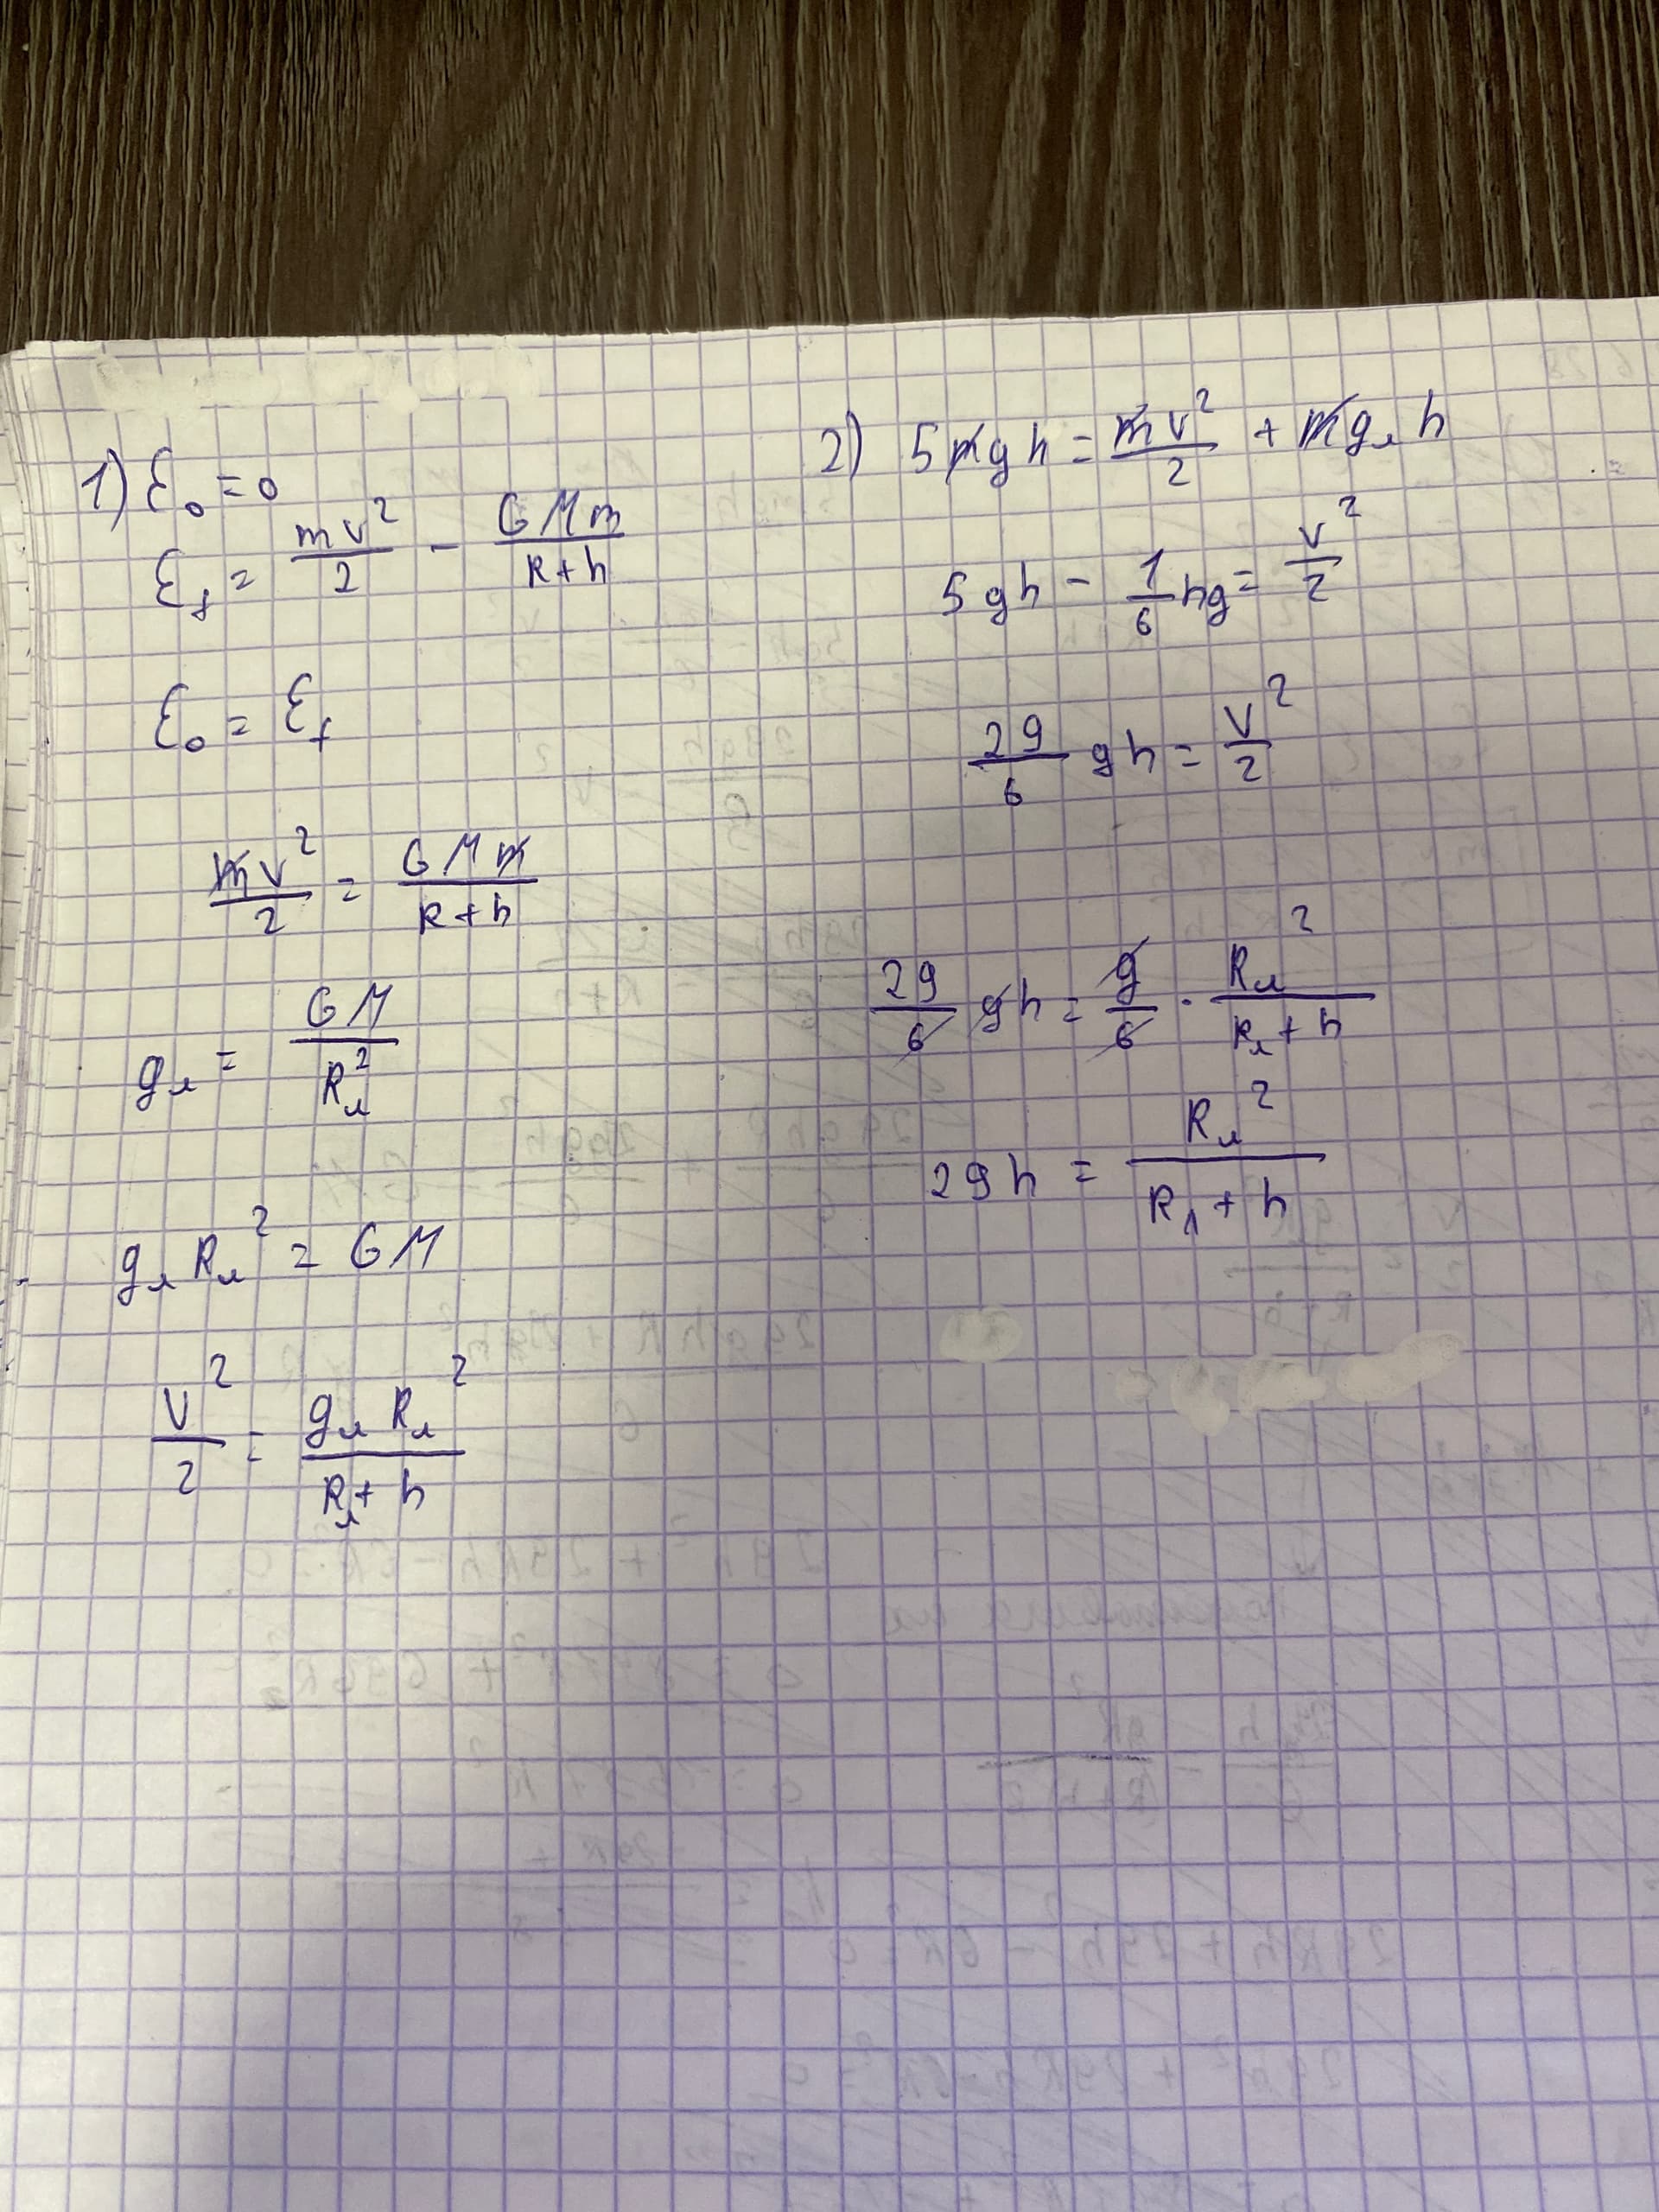 1) ε₀ = 0
ε_f = mv²/2 - GMm/(R+h)
ε₀ = ε_f
mv²/2 = GMm/(R+h)
g_л = GM/R_л²
g_л R_л² = GM
v²/2 = g_л R_л²/(R_л+h)
2) 5mgh = mv²/2 + mg_л h
5gh - 1/6 hg = v²/2
29/6 gh = v²/2
29/6 gh = g/6 · R_л²/(R_л+h)
29h = R_л²/(R_л+h)